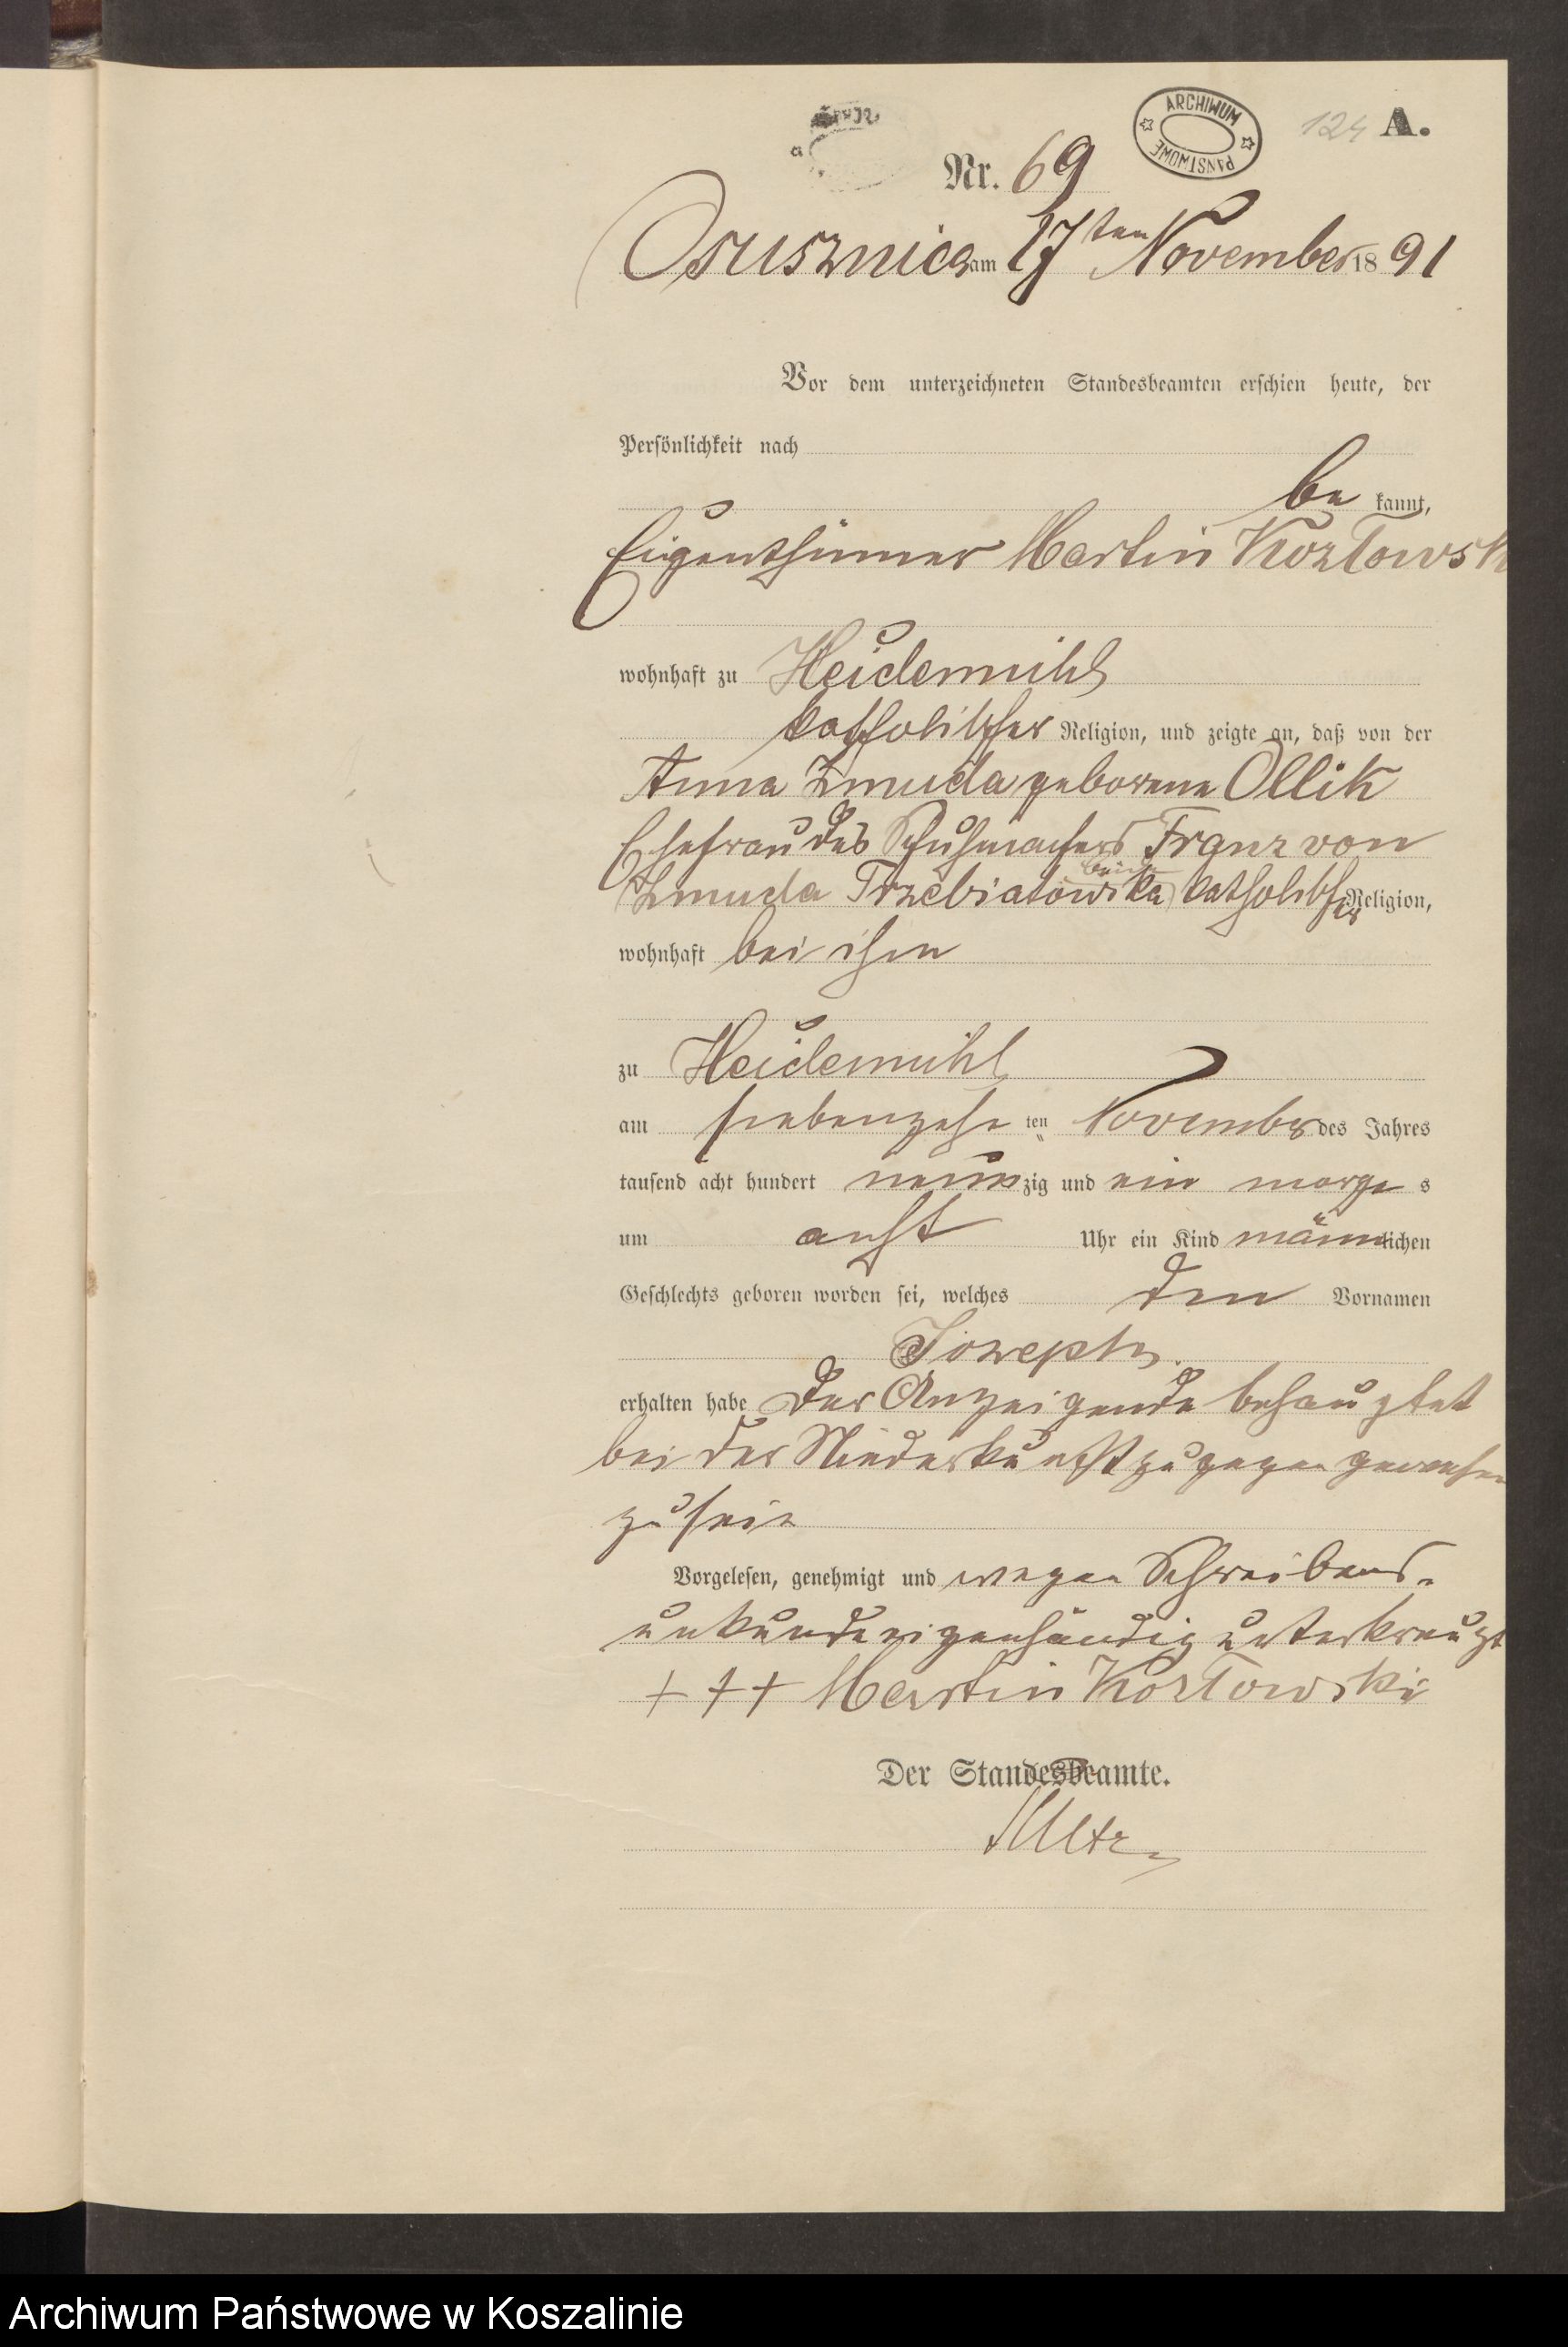 ARCHIWUM PAŃSTWOWE
124 A.
Nr. 69
Osusznica am 17ten November 1891
Vor dem unterzeichneten Standesbeamten erschien heute, der
Persönlichkeit nach
be kannt,
Eigenthümer Martin Kozlowsk
wohnhaft zu Heidemühl
katholischer Religion, und zeigte an, daß von der
Anna Zmuda geborene Ollik
Ehefrau des Schuhmachers Franz von
beide
Zmuda Trzebiatowska katholischer Religion,
wohnhaft bei ihm
zu Heidemühl
am siebenzehn ten November des Jahres
tausend acht hundert neunzig und ein morgens
um acht Uhr ein Kind männlichen
Geschlechts geboren worden sei, welches den Vornamen
Jozeph
erhalten habe Der Anzeigende behauptet
bei der Niederkunft zugegen gewesen
zu sein
Vorgelesen, genehmigt und wegen Schreibens-
unkunde eigenhändig unterkreuzt
+ + + Martin Kozlowski
Der Standesbeamte.
Archiwum Państwowe w Koszalinie